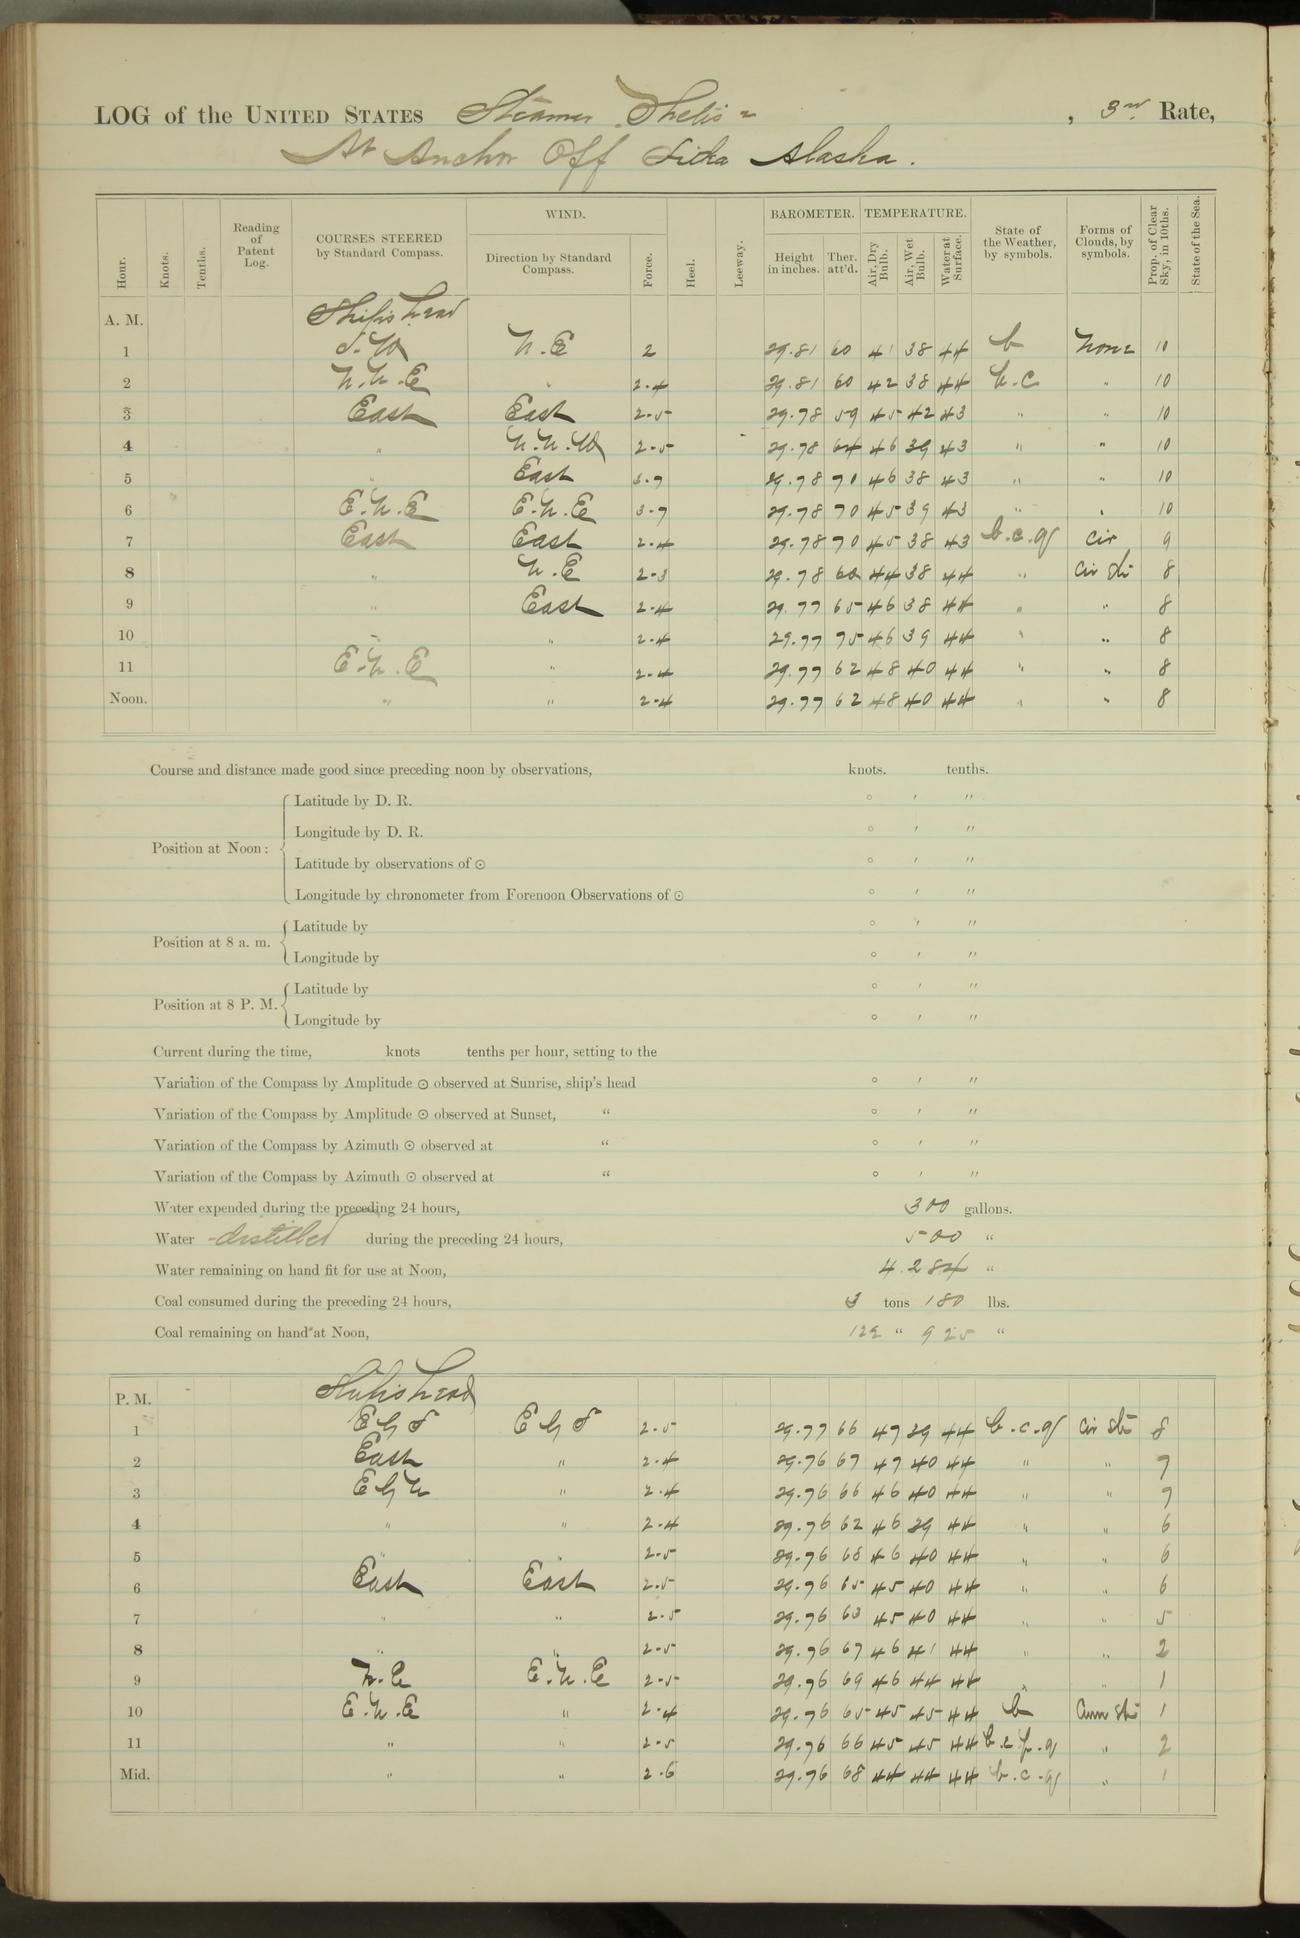 LOG of the UNITED STATES Steamer Thetis , 3rd Rate,
At Anchor Off Sitka Alaska.
Hour. Knots. Tenths. Reading of Patent Log. COURSES STEERED by Standard Compass. WIND. Direction by Standard Compass. Force. Heel. Leeway. BAROMETER. Height in inches. Ther. att'd. TEMPERATURE. Air, Dry Bulb. Air, Wet Bulb. Water at Surface. State of the Weather, by symbols. Forms of Clouds, by symbols. Prop. of Clear Sky, in 10ths. State of the Sea.
A. M. Ship's head
1 S.W N.E 2 29.81 60 41 38 44 b None 10
2 N.N.E " 2-4 29.81 60 42 38 44 b.c " 10
3 East East 2-5 29.78 59 45 42 43 " " 10
4 " N.N.W 2-5 29.78 64 46 39 43 " " 10
5 " East 3-7 29.78 70 46 38 43 " " 10
6 E.N.E E.N.E 3-7 29.78 70 45 39 43 " " 10
7 East East 2-4 29.78 70 45 38 43 b.c.q cir 9
8 " N.E 2-3 29.78 60 44 38 44 " Cir Str 8
9 " East 2-4 29.77 65 46 38 44 " " 8
10 " " 2-4 29.77 75 46 39 44 " " 8
11 E.N.E " 2-4 29.77 62 48 40 44 " " 8
Noon. " " 2-4 29.77 62 48 40 44 " " 8
Course and distance made good since preceding noon by observations, knots. tenths.
Position at Noon:
Latitude by D. R. ° ′ ″
Longitude by D. R. ° ′ ″
Latitude by observations of ⊙ ° ′ ″
Longitude by chronometer from Forenoon Observations of ⊙ ° ′ ″
Position at 8 a. m.
Latitude by ° ′ ″
Longitude by ° ′ ″
Position at 8 P. M.
Latitude by ° ′ ″
Longitude by ° ′ ″
Current during the time, knots tenths per hour, setting to the
Variation of the Compass by Amplitude ⊙ observed at Sunrise, ship's head ° ′ ″
Variation of the Compass by Amplitude ⊙ observed at Sunset, “ ° ′ ″
Variation of the Compass by Azimuth ⊙ observed at “ ° ′ ″
Variation of the Compass by Azimuth ⊙ observed at “ ° ′ ″
Water expended during the preceding 24 hours, 300 gallons.
Water distilled during the preceding 24 hours, 500 “
Water remaining on hand fit for use at Noon, 4.284 “
Coal consumed during the preceding 24 hours, 3 tons 180 lbs.
Coal remaining on hand at Noon, 122 “ 925 “
P. M. Ship's head
1 E by S E by S 2-5 29.77 66 47 39 44 b.c.q Cir Str 8
2 East " 2-4 29.76 67 47 40 44 " " 7
3 E by N " 2-4 29.76 66 46 40 44 " " 7
4 " " 2-4 29.76 62 46 39 44 " " 6
5 " " 2-5 29.76 68 46 40 44 " " 6
6 East East 2-5 29.76 65 45 40 44 " " 6
7 " " 2-5 29.76 63 45 40 44 " " 5
8 " " 2-5 29.76 67 46 41 44 " " 2
9 N.E E.N.E 2-5 29.76 69 46 44 44 " " 1
10 E.N.E " 2-4 29.76 65 45 45 44 b Cum Str 1
11 " " 2-5 29.76 66 45 45 44 b.c.p.q " 2
Mid. " " 2-6 29.76 68 44 44 44 b.c.q " 1